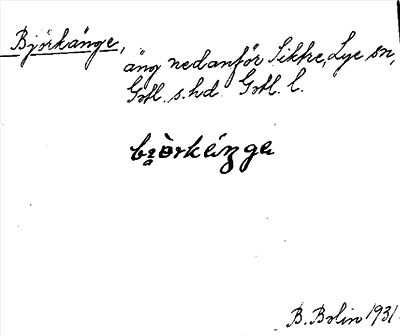 Björkänge,
äng nedanför Sikhre, Lye sn,
Gotl. s. hd Gotl. l.
bi̯òrkéŋge
B. Bolin 1931